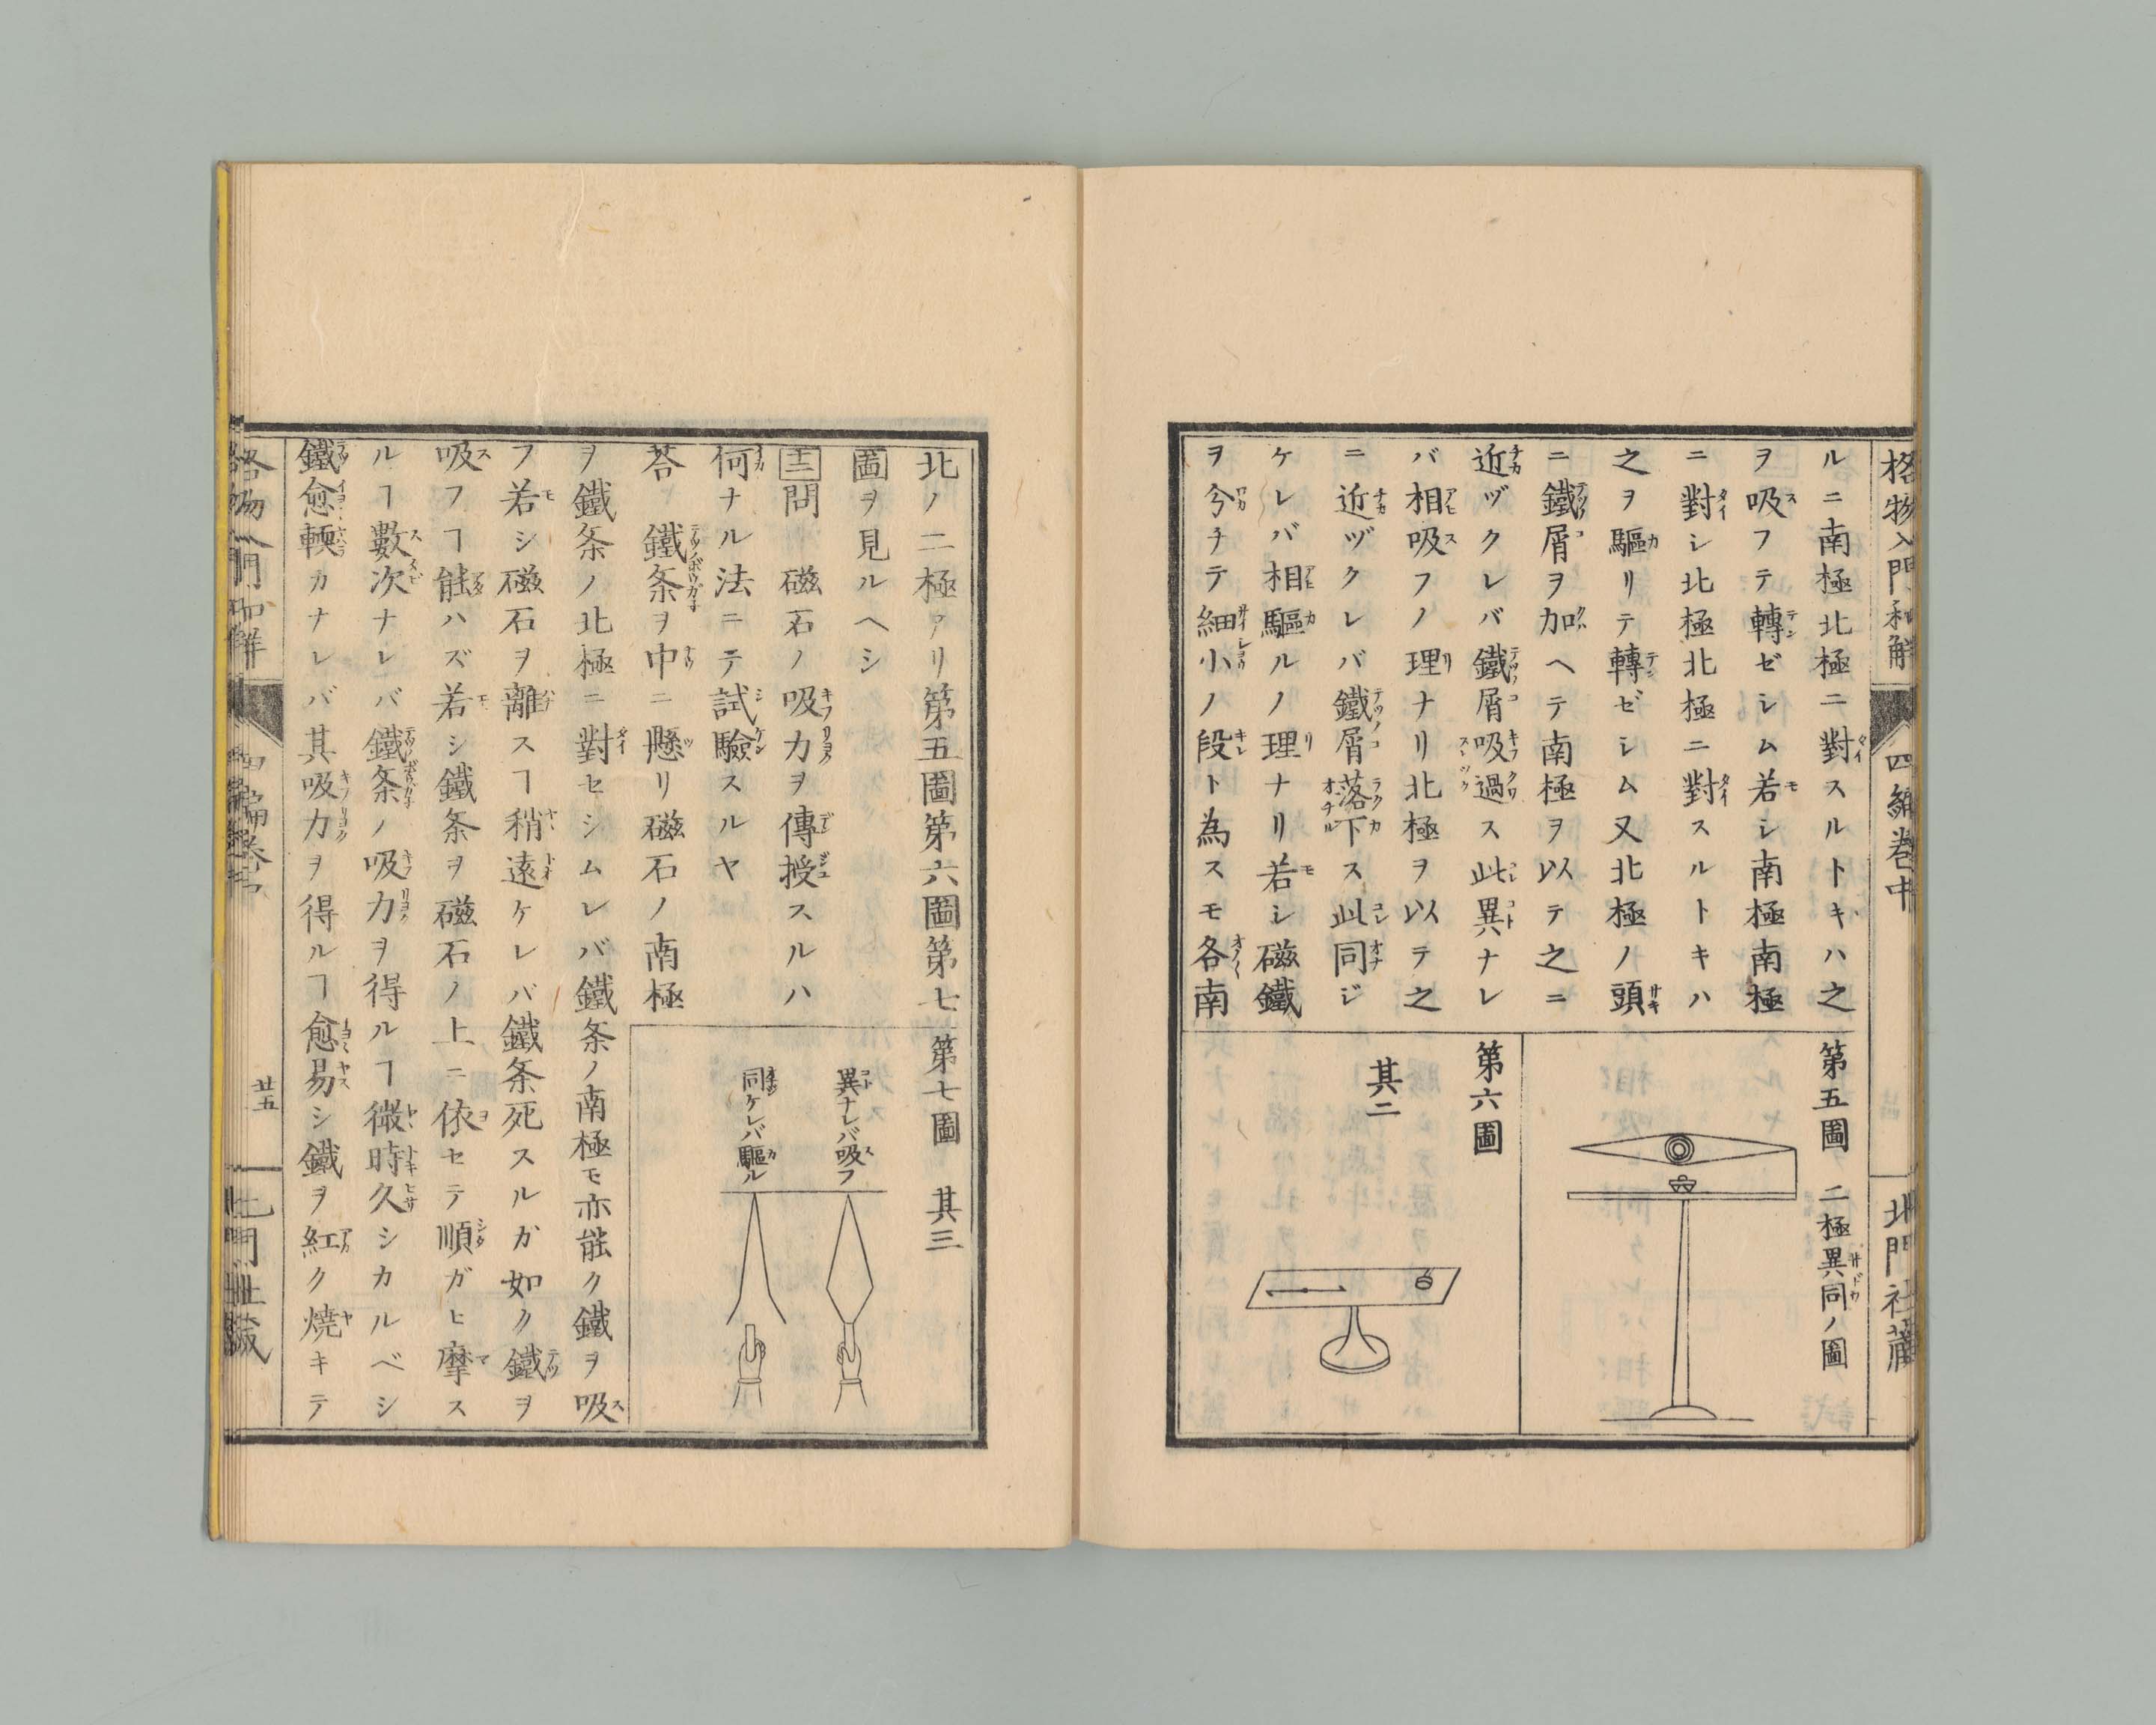 格物入門和解
四編巻中
北門社蔵
ルニ南極北極ニ對スルトキハ之
ヲ吸フテ轉ゼシム若シ南極南極
ニ對シ北極北極ニ對スルトキハ
之ヲ驅リテ轉ゼシム又北極ノ頭
ニ鐵屑ヲ加ヘテ南極ヲ以テ之ニ
近ヅクレバ鐵屑吸過ス此異ナレ
バ相吸フノ理ナリ北極ヲ以テ之
ニ近ヅクレバ鐵屑落下ス此同ジ
ケレバ相驅ルノ理ナリ若シ磁鐵
ヲ分チテ細小ノ段ト為スモ各南
第五圖 二極異同ノ圖
第六圖
其二
北ノ二極アリ第五圖第六圖第七
圖ヲ見ルヘシ
十三問 磁石ノ吸力ヲ傳授スルハ
何ナル法ニテ試驗スルヤ
荅 鐵条ヲ中ニ懸リ磁石ノ南極
ヲ鐵条ノ北極ニ對セシムレバ鐵条ノ南極モ亦能ク鐵ヲ吸
フ若シ磁石ヲ離スヿ稍遠ケレバ鐵条死スルガ如ク鐵ヲ
吸フヿ能ハズ若シ鐵条ヲ磁石ノ上ニ依セテ順ガヒ摩ス
ルヿ數次ナレバ鐵条ノ吸力ヲ得ルヿ微時久シカルベシ
鐵愈輭カナレバ其吸力ヲ得ルヿ愈易シ鐵ヲ紅ク燒キテ
第七圖 其三
異ナレバ吸フ
同ケレバ驅ル
格物入門和解
四編巻中
廿五
北門社蔵